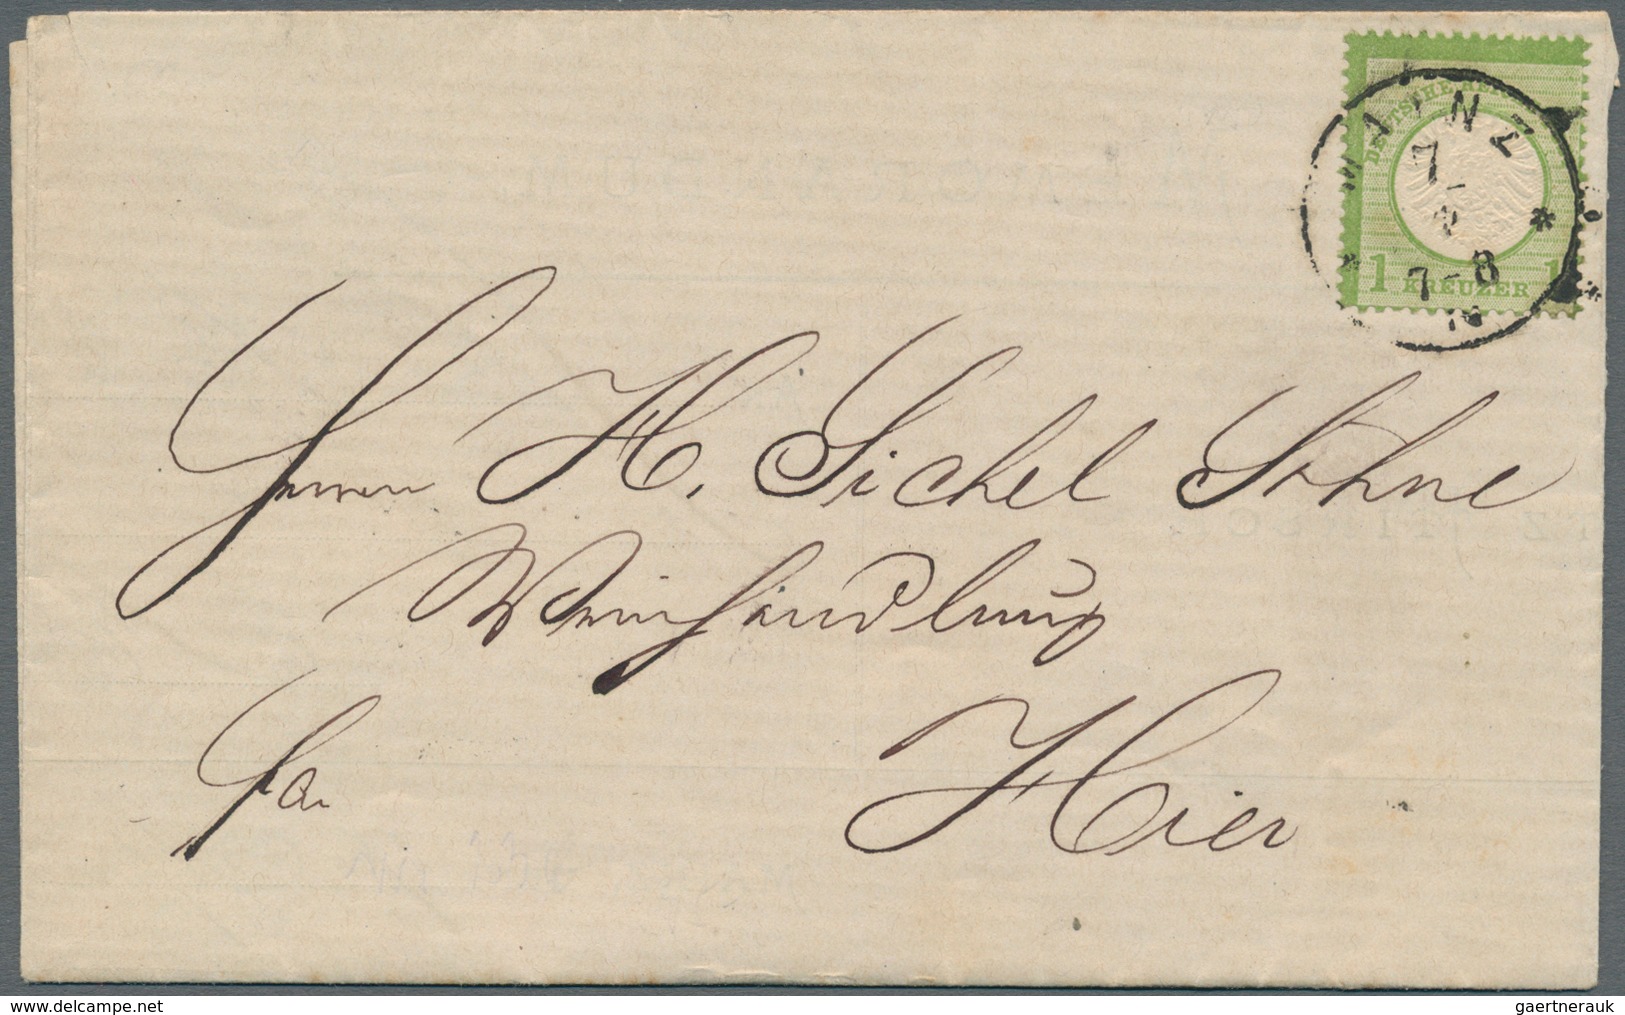 MAINZ
7
7-8
N
DEUTSCHE REICHS
1 KREUZER 1
Herren H. Sichel Söhne
Weinhandlung
fr.
Hier
www.delcampe.net
gaertnerauk